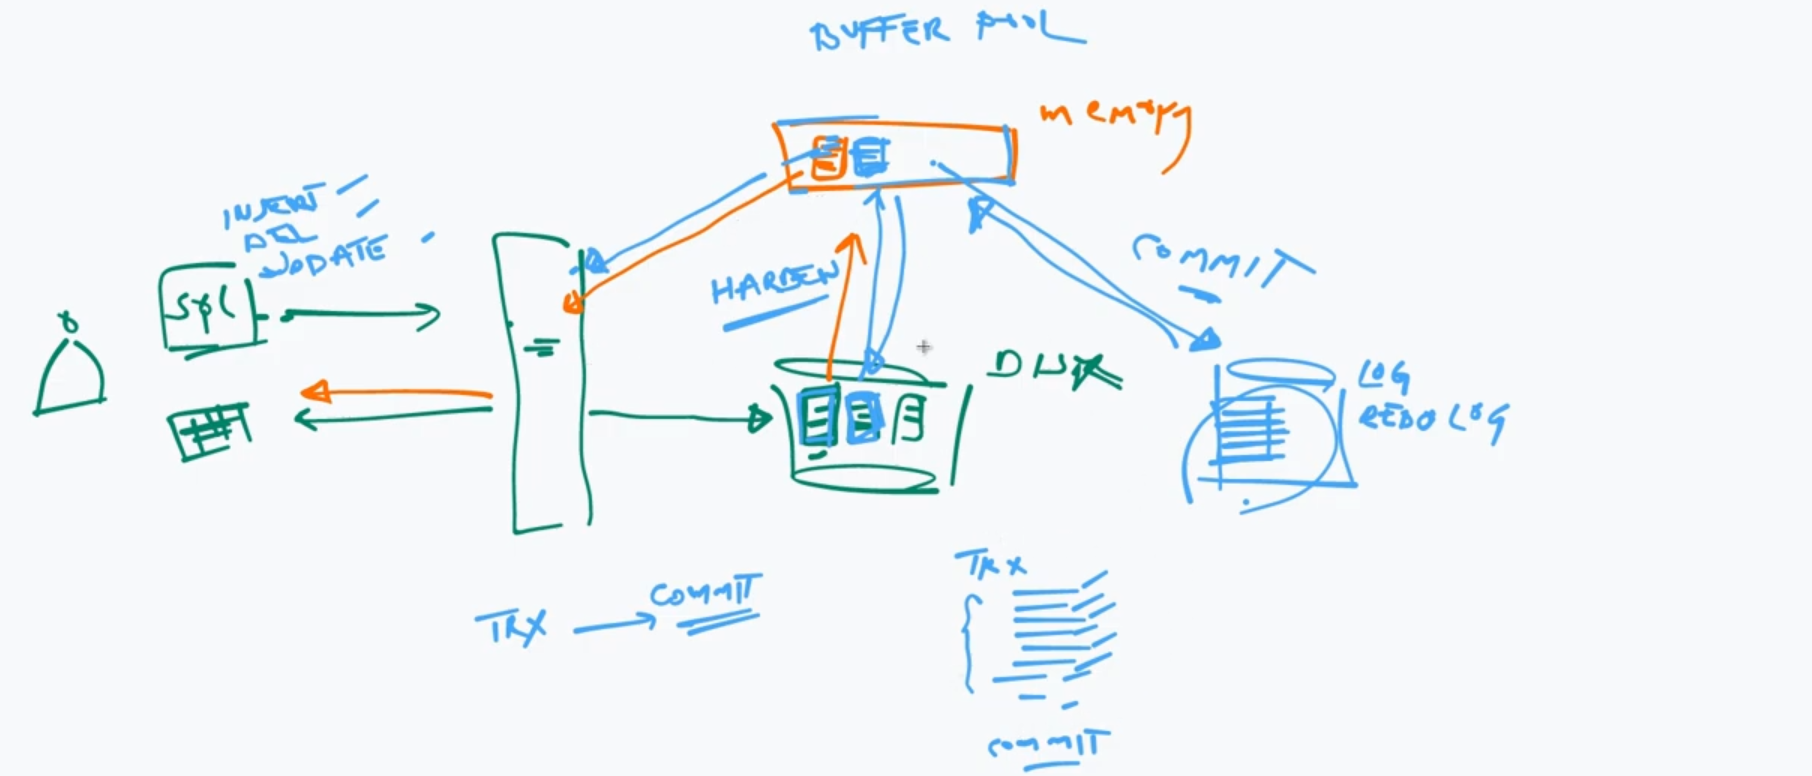 BUFFER POOL
memory
INSERT
DEL
UPDATE
SQL
HARDEN
COMMIT
DISK
LOG
REDO LOG
TRX
COMMIT
TRX
COMMIT